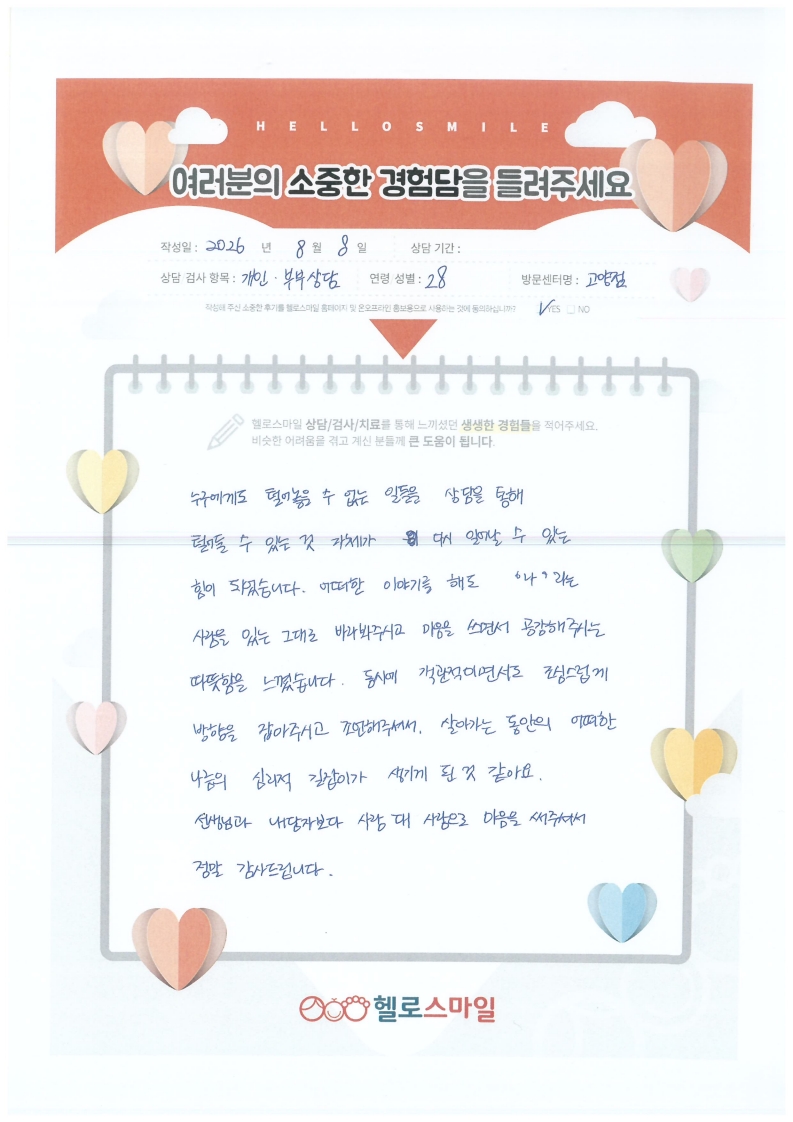 HELLOSMILE
여러분의 소중한 경험담을 들려주세요
작성일 : 2026 년 8 월 8 일 상담 기간 :
상담 검사 항목 : 개인 · 부부상담 연령 성별 : 28 방문센터명 : 고양점
작성해 주신 소중한 후기를 헬로스마일 홈페이지 및 온오프라인 홍보용으로 사용하는 것에 동의하십니까? ✓YES □ NO
헬로스마일 상담/검사/치료를 통해 느끼셨던 생생한 경험들을 적어주세요.
비슷한 어려움을 겪고 계신 분들께 큰 도움이 됩니다.
누구에게도 털어놓을 수 없는 일들을 상담을 통해
털어둘 수 있는 것 자체가 다시 일어날 수 있는
힘이 되었습니다. 어떠한 이야기를 해도 '나' 라는
사람을 있는 그대로 바라봐주시고 마음을 쓰면서 공감해주시는
따뜻함을 느꼈습니다. 동시에 객관적이면서도 조심스럽게
방향을 잡아주시고 조언해주셔서, 살아가는 동안의 어떠한
나름의 심리적 길잡이가 생기게 된 것 같아요.
선생님과 내담자보다 사람 대 사람으로 마음을 써주셔서
정말 감사드립니다.
헬로스마일